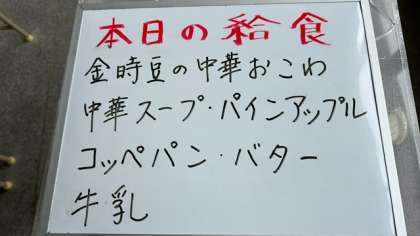 本日の給食
金時豆の中華おこわ
中華スープ・パインアップル
コッペパン・バター
牛乳